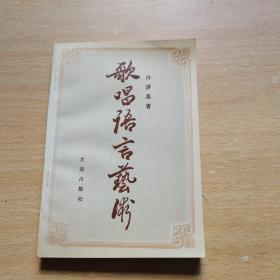 许讲真著
歌唱语言藝術
大连出版社